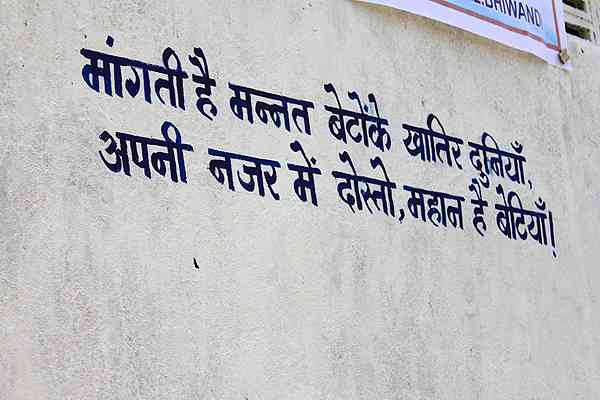 E.BHIWANDI
मांगती है मन्नत बेटोंकै खातिर दुनियाँ,
अपनी नजर में दोस्तो, महान है बेटियाँ!